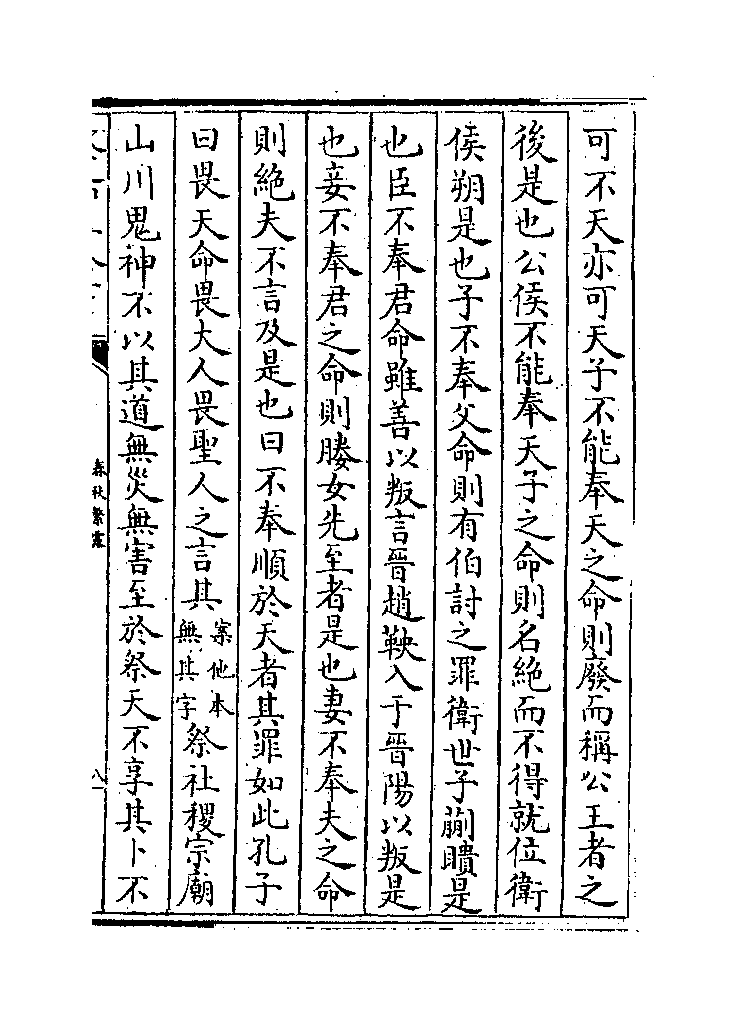 可不天亦可天子不能奉天之命則廢而稱公王者之
後是也公侯不能奉天子之命則名絶而不得就位衛
侯朔是也子不奉父命則有伯討之罪衛世子蒯聵是
也臣不奉君命雖善以叛言晉趙鞅入于晉陽以叛是
也妾不奉君之命則媵女先至者是也妻不奉夫之命
則絶夫不言及是也曰不奉順於天者其罪如此孔子
曰畏天命畏大人畏聖人之言其案他本無其字祭社稷宗廟
山川鬼神不以其道無災無害至於祭天不享其卜不
春秋繁露
八